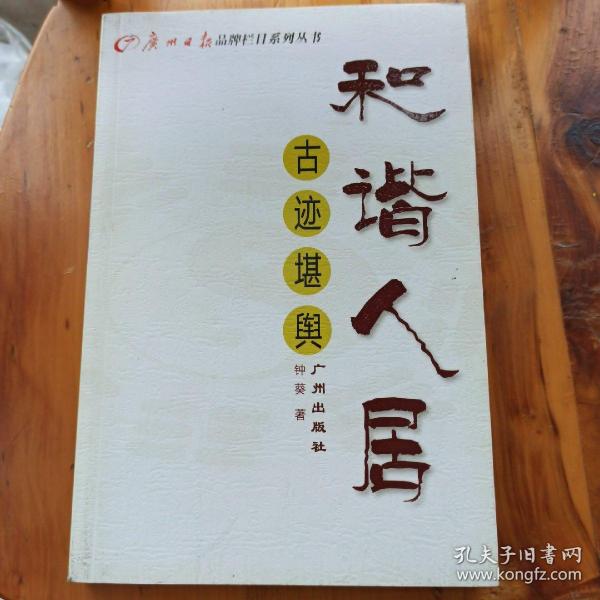 广州日报品牌栏目系列丛书
和谐人居
古迹堪舆
钟葵 著
广州出版社
孔夫子旧书网
www.kongfz.com